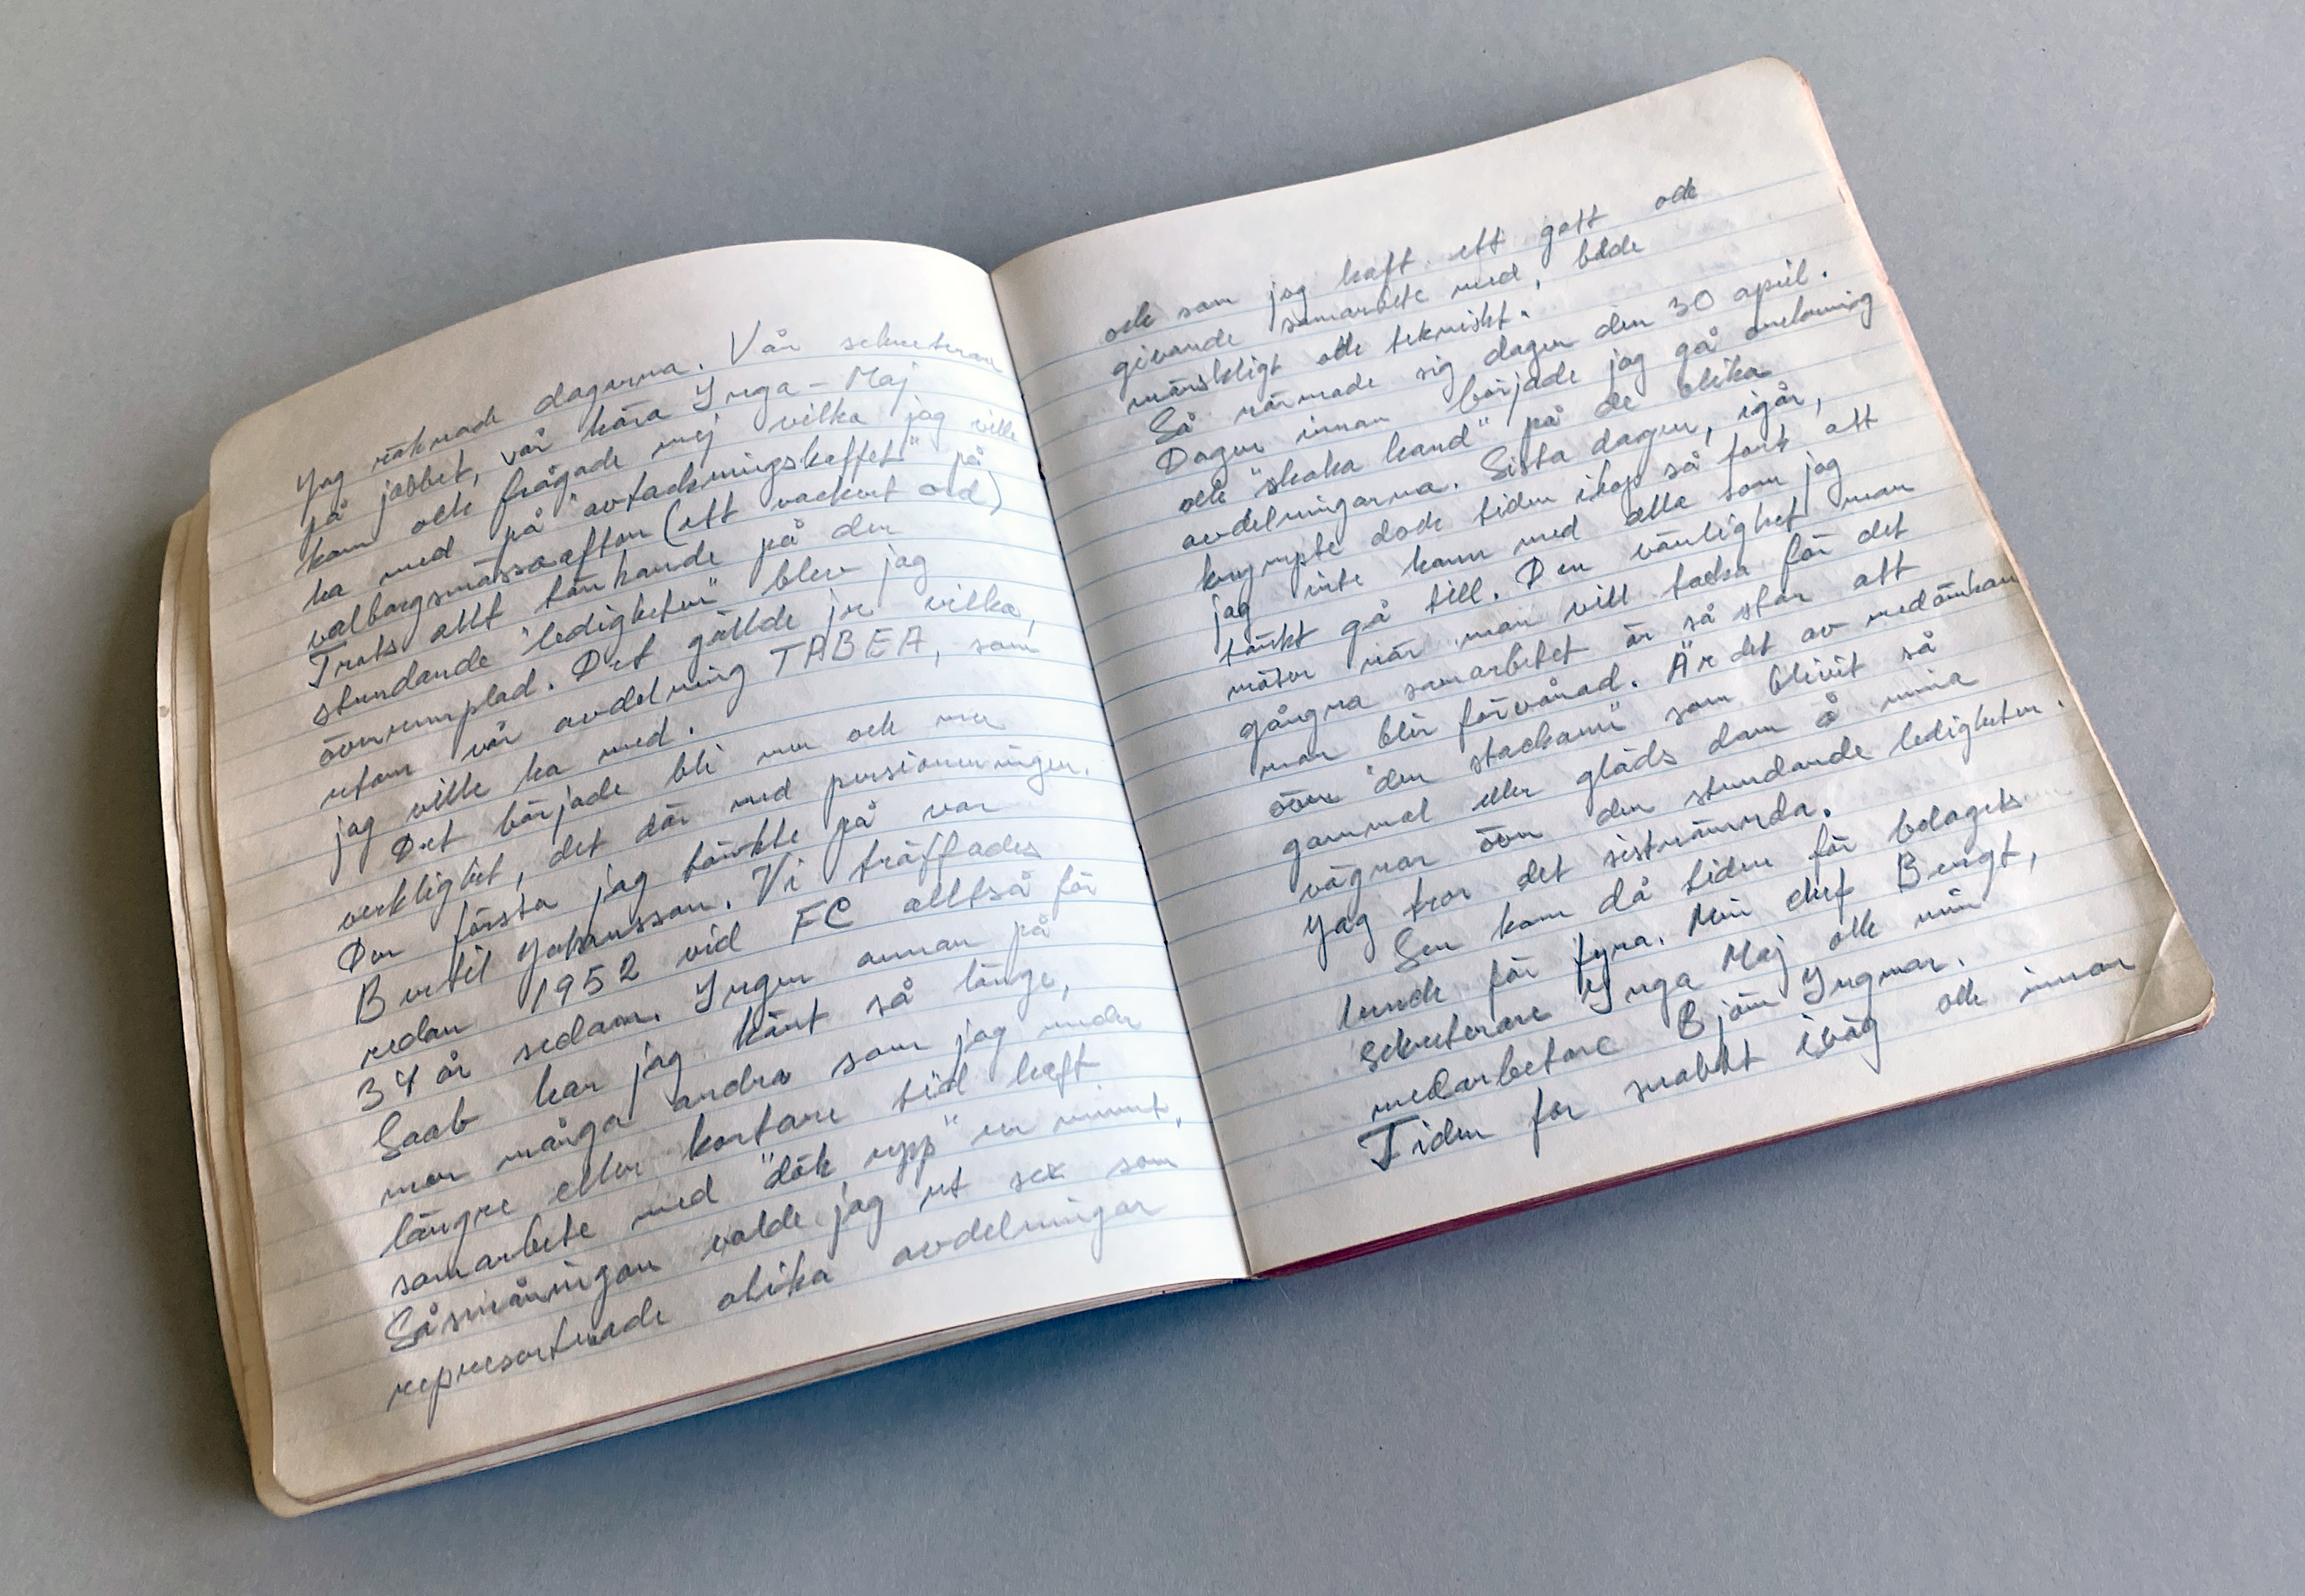 Jag räknade dagarna. Vår sekreterare
på jobbet, vår kära Inga-Maj
kom och frågade mej vilka jag ville
ha med på "avtackningskaffet" på
valborgsmässoafton (ett vackert ord)
Trots allt tänkande på den
stundande "ledigheten" blev jag
överrumplad. Det gällde ju vilka,
utom vår avdelning TABEA, som
jag ville ha med.
Det började bli mer och mer
verklighet, det där med pensioneringen.
Den första jag tänkte på var
Bertil Johansson. Vi träffades
redan 1952 vid FC alltså för
34 år sedan. Ingen annan på
Saab har jag känt så länge,
men många andra som jag under
längre eller kortare tid haft
samarbete med "dök upp" ur minnet.
Såsmåningom valde jag ut sex som
representerade olika avdelningar
och som jag haft ett gott och
givande samarbete med, både
mänskligt och tekniskt.
Så närmade sig dagen den 30 april.
Dagen innan började jag gå omkring
och "skaka hand" på de olika
avdelningarna. Sista dagen, igår,
krympte dock tiden ihop så fort att
jag inte hann med alla som jag
tänkt gå till. Den vänlighet man
möter när man vill tacka för det
gångna samarbetet är så stor att
man blir förvånad. Är det av medömkan
över "den stackarn" som blivit så
gammal eller gläds dom å mina
vägnar över den stundande ledigheten.
Jag tror det sistnämnda.
Sen kom då tiden för bolagets
lunch för fyra. Min chef Bengt,
sekreterare Inga Maj och min
medarbetare Björn Ingmar.
Tiden for snabbt iväg och innan